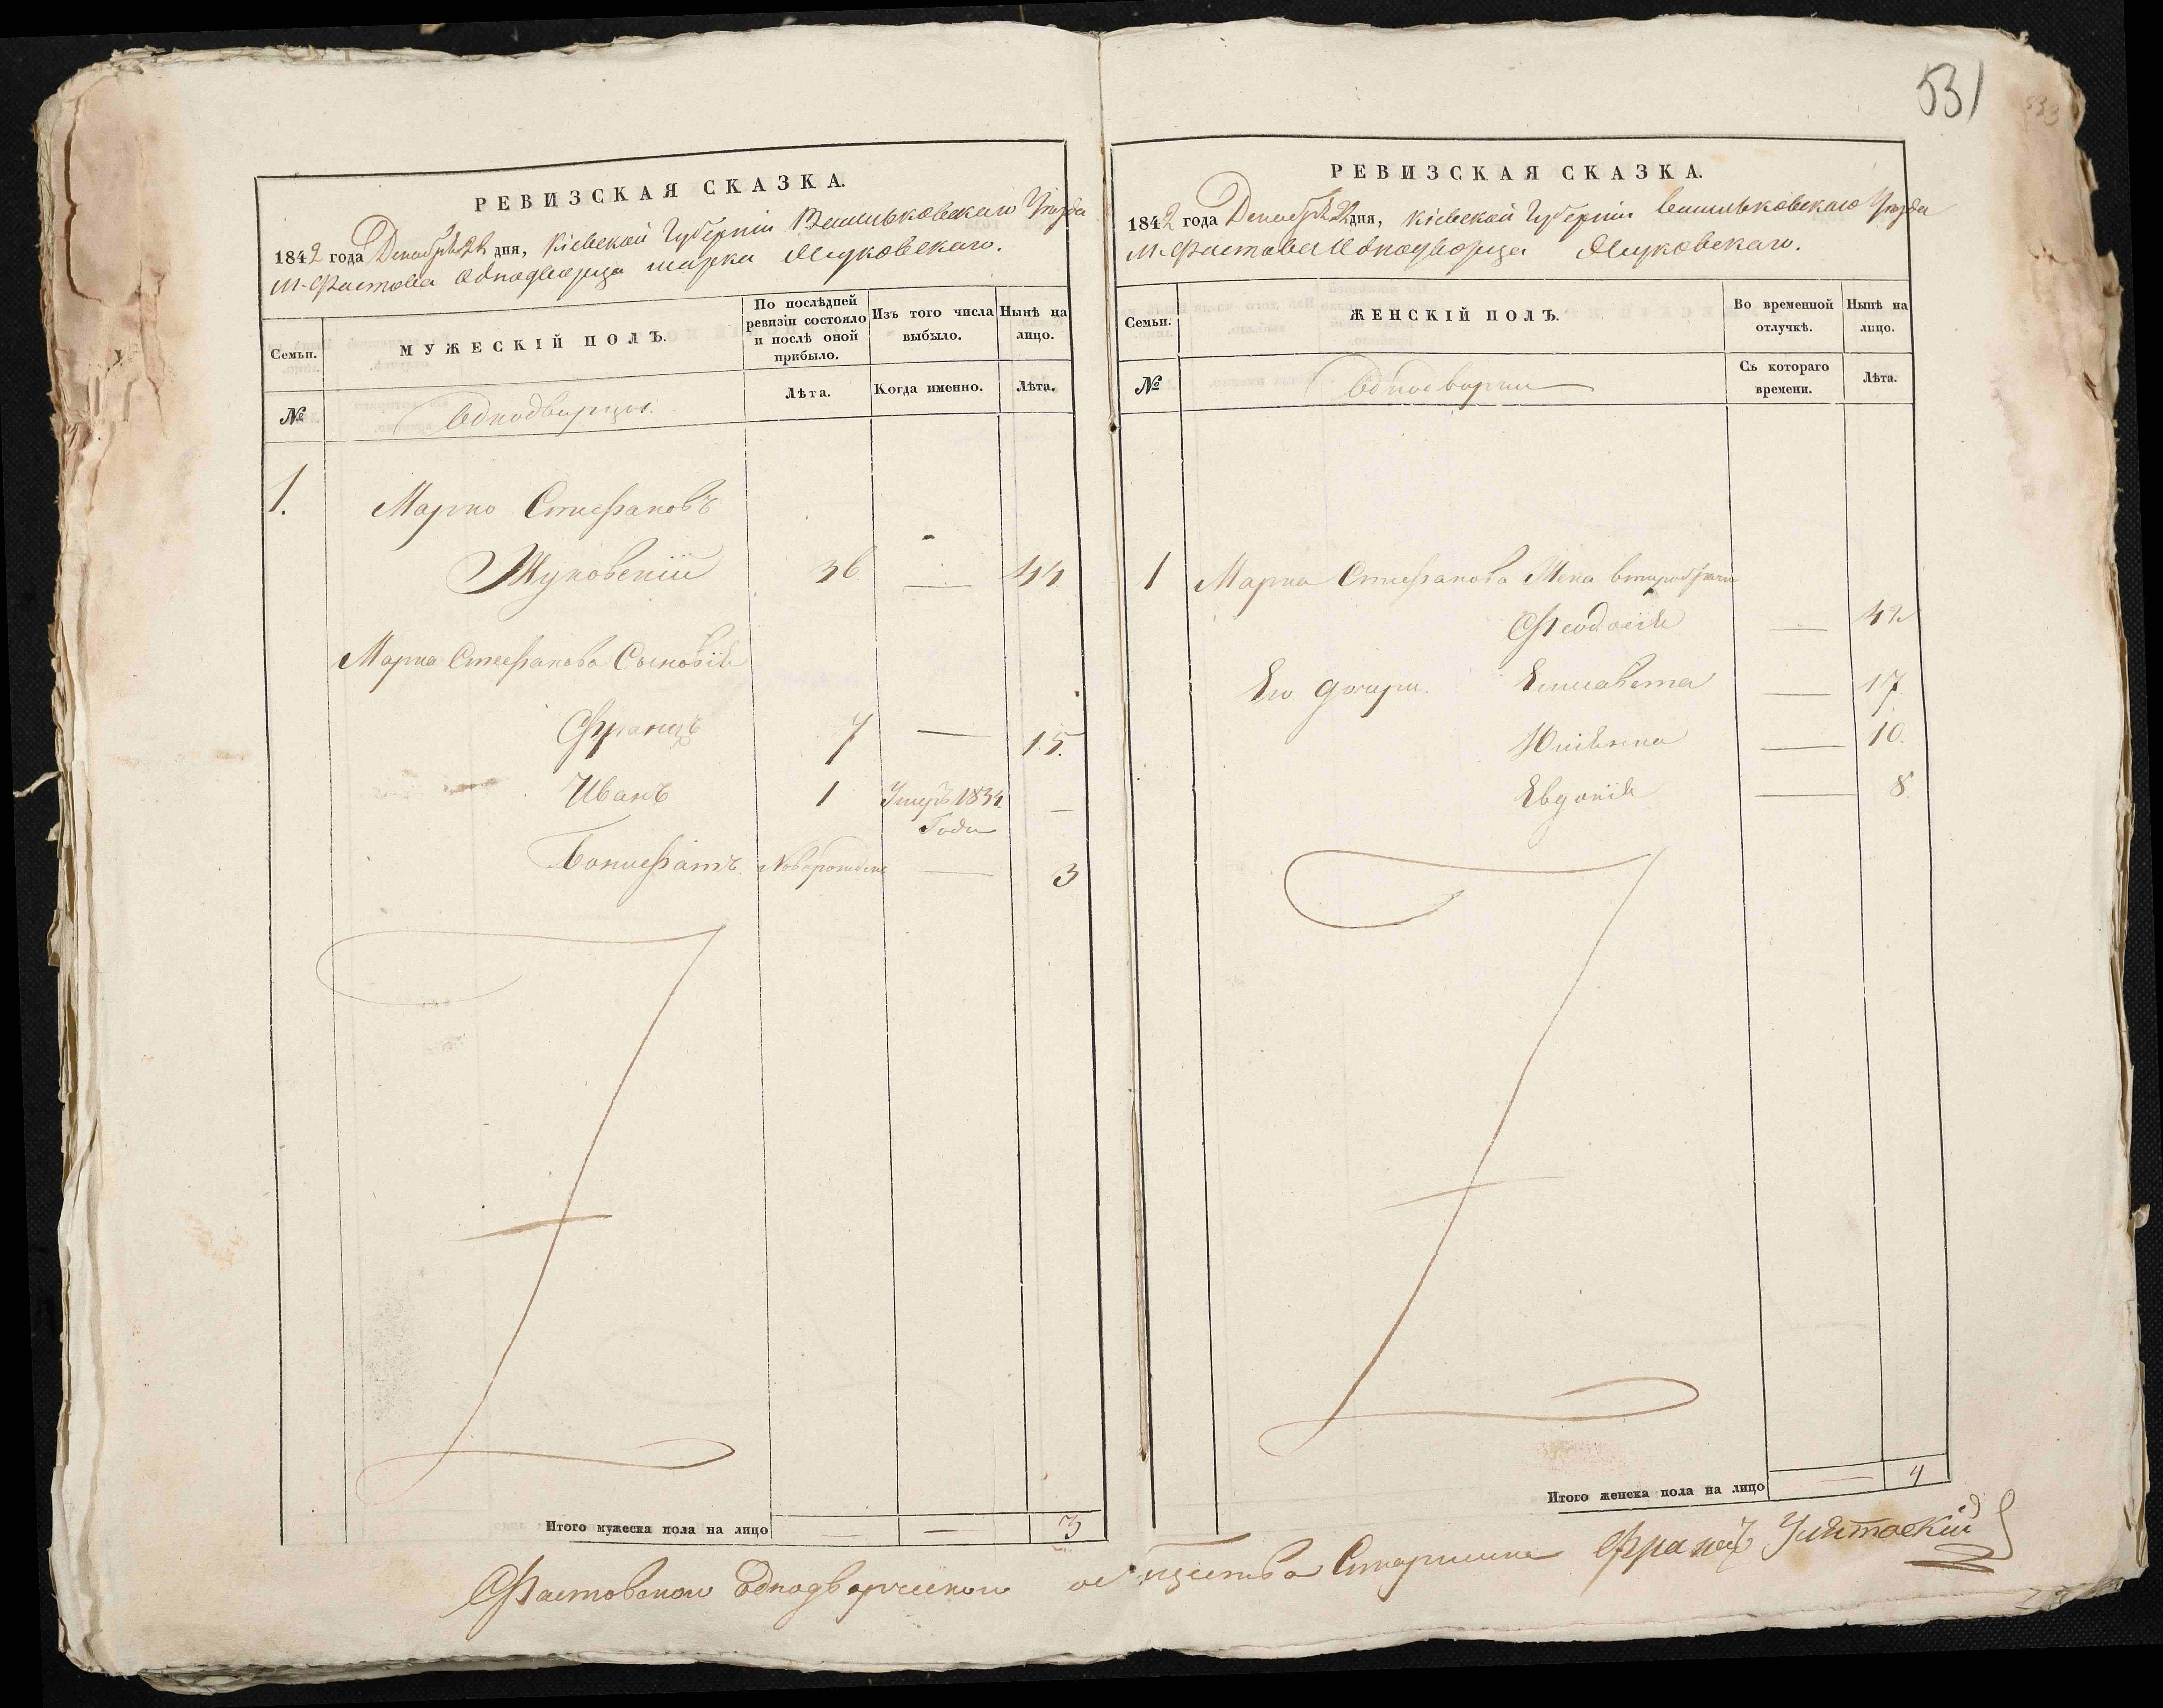 531
533
РЕВИЗСКАЯ СКАЗКА.
1842 года Декабря 22 дня, Кіевской Губерніи Васильковскаго Уѣзда
м. Фастова однодворца Марка Жуковскаго.
Семьи.
МУЖЕСКІЙ ПОЛЪ.
По послѣдней ревизіи состояло и послѣ оной прибыло.
Изъ того числа выбыло.
Нынѣ на лицо.
№
Однодворцы.
Лѣта.
Когда именно.
Лѣта.
1. Марко Стефановъ
Жуковскій 36 — 44
Марка Стефанова Сыновія
Францъ 7 — 15.
Иванъ 1 Умеръ 1834 —
Года
Бонифатъ Новорожденъ — 3
Итого мужеска пола на лицо — — 3
РЕВИЗСКАЯ СКАЗКА.
1842 года Декабря 22 дня, Кіевской Губерніи Васильковскаго Уѣзда
м. Фастова Однодворца Жуковскаго.
Семьи.
ЖЕНСКІЙ ПОЛЪ.
Во временной отлучкѣ.
Нынѣ на лицо.
№
Однодворки
Съ котораго времени.
Лѣта.
1 Марка Стефанова Жена
Феодосія — 42
Его дочери. Елисавета — 17.
— 10.
Евдокія — 8.
Итого женска пола на лицо — 4
Фастовского Однодворческого общества Старшина Францъ